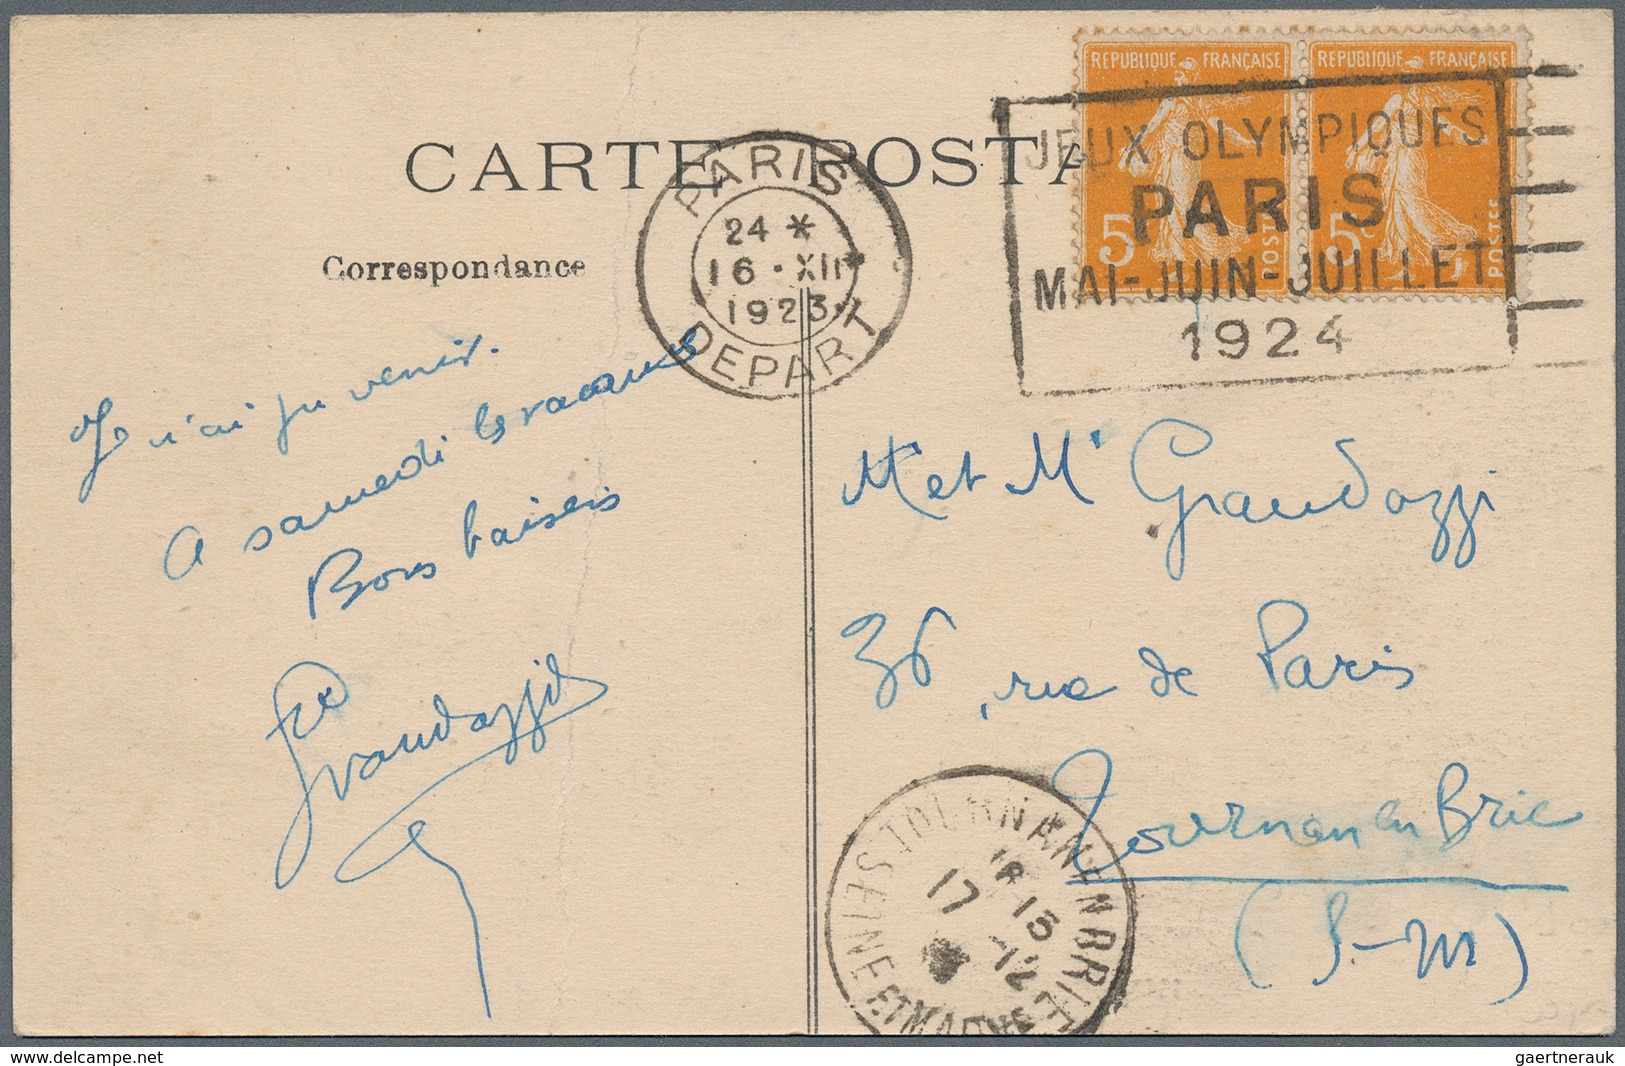 CARTE POSTA
RÉPUBLIQUE FRANÇAISE
5c POSTES
RÉPUBLIQUE FRANÇAISE
5c POSTES
PARIS
24 *
16 · XII
1923
DEPART
JEUX OLYMPIQUES
PARIS
MAI-JUIN-JUILLET
1924
Correspondance
Je n'ai pu venir.
A samedi les vacances
Bons baisers
Grandozzi
M et Me Grandozzi
36, rue de Paris
Tournan en Brie
(S-M)
TOURNAN EN BRIE
18 15
17 -12
SEINE ET MARNE
Delcampe.net
gaertnerauk